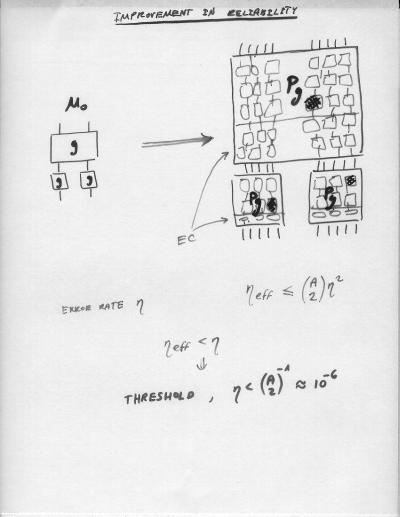 IMPROVEMENT IN RELIABILITY
M₀
g
g g
Pg
Pg Pg
EC
ERROR RATE η
ηeff ≤ (A 2) η²
ηeff < η
⇓
THRESHOLD, η < (A 2)⁻¹ ≈ 10⁻⁶